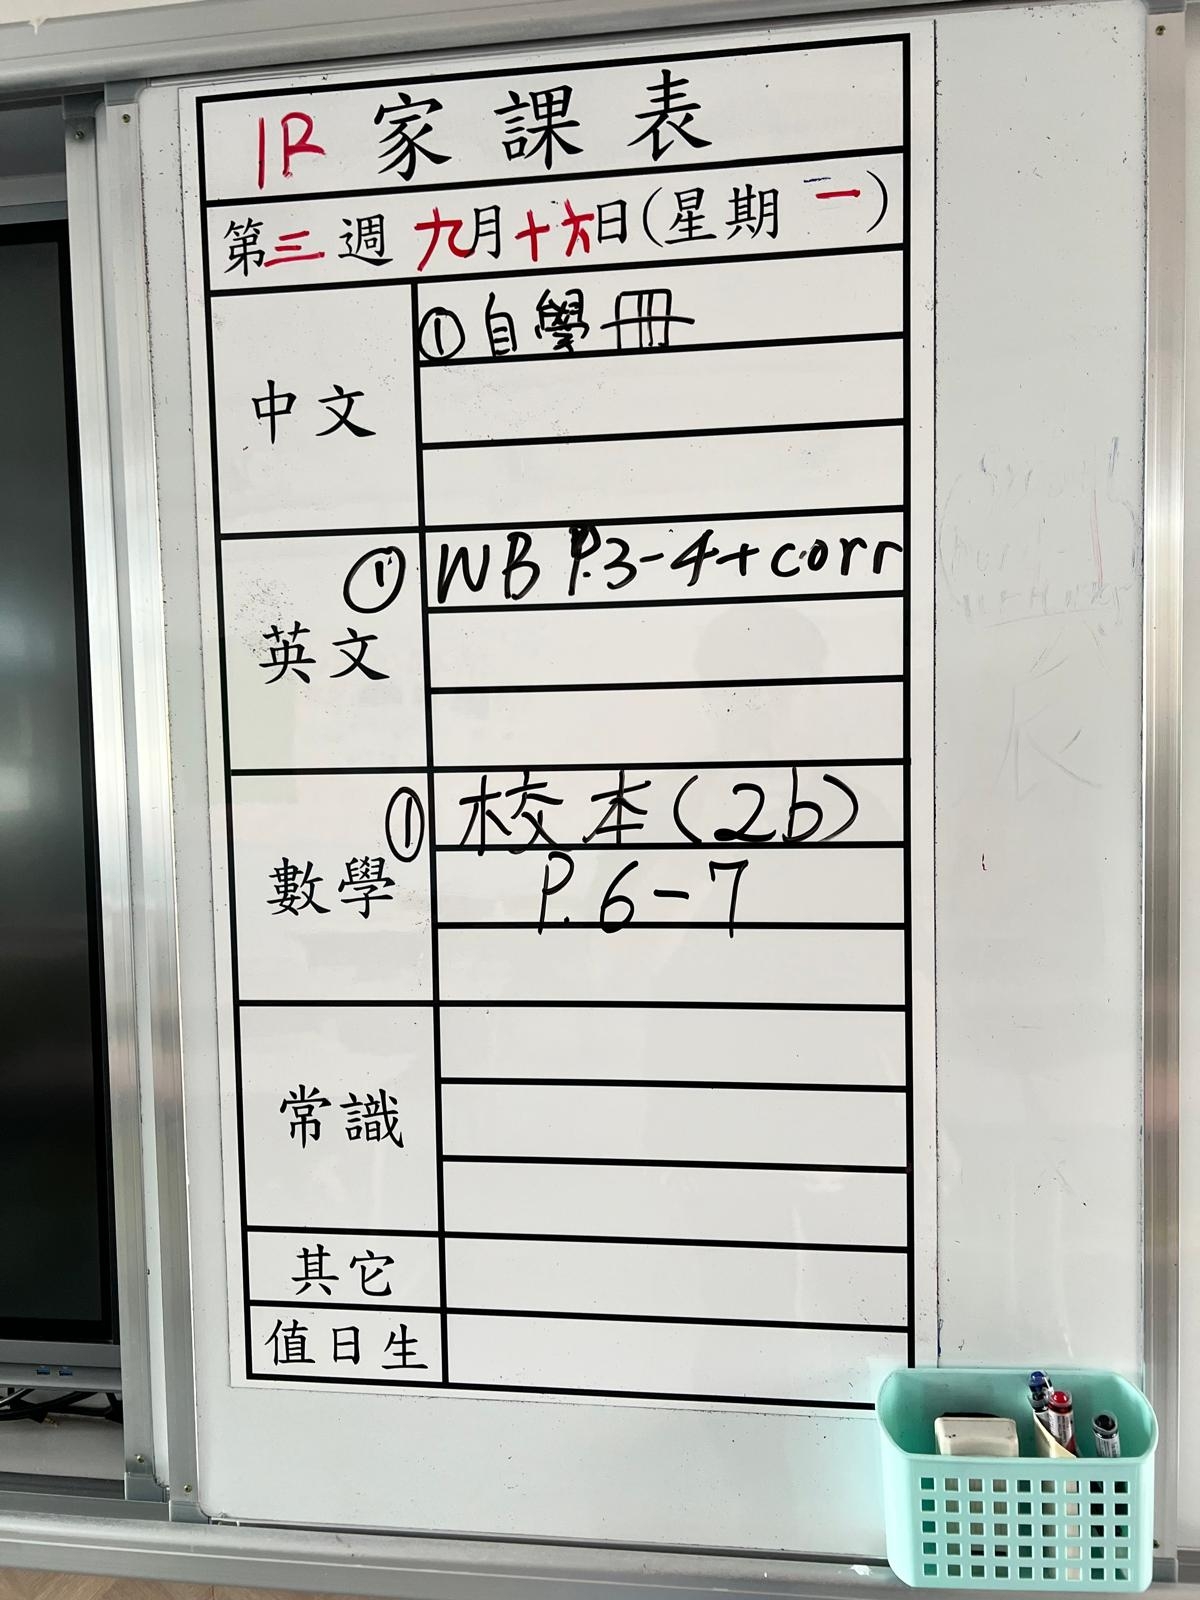 1R 家課表
第三週 九月十六日(星期一)
中文
① 自學冊
英文
① WB P.3-4+corr
數學
① 校本(2b)
P.6-7
常識
其它
值日生